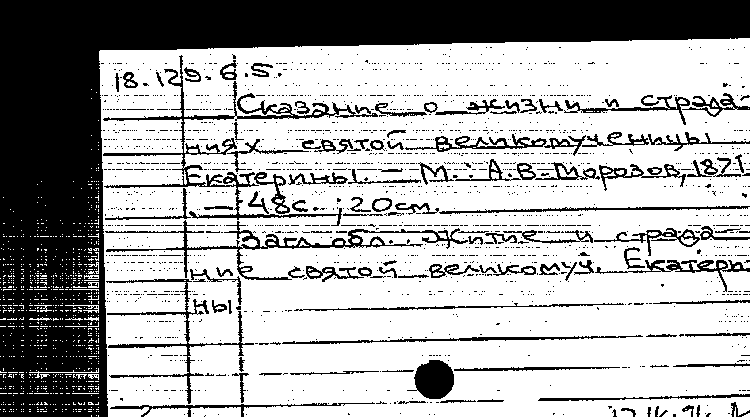 18.129.6.5.
Сказание о жизни и страда-
ниях святой великомученицы
Екатерины. — М.: А.В. Морозов, 1871
. — 48с. ; 20см.
Загл. обл.: Житие и страда-
ние святой великомуч. Екатери-
ны.